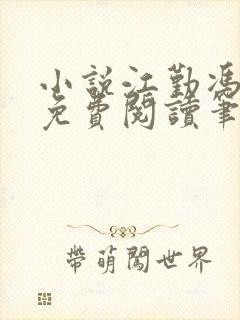 小說江勤馮
免費閱讀筆
帶萌闖世界